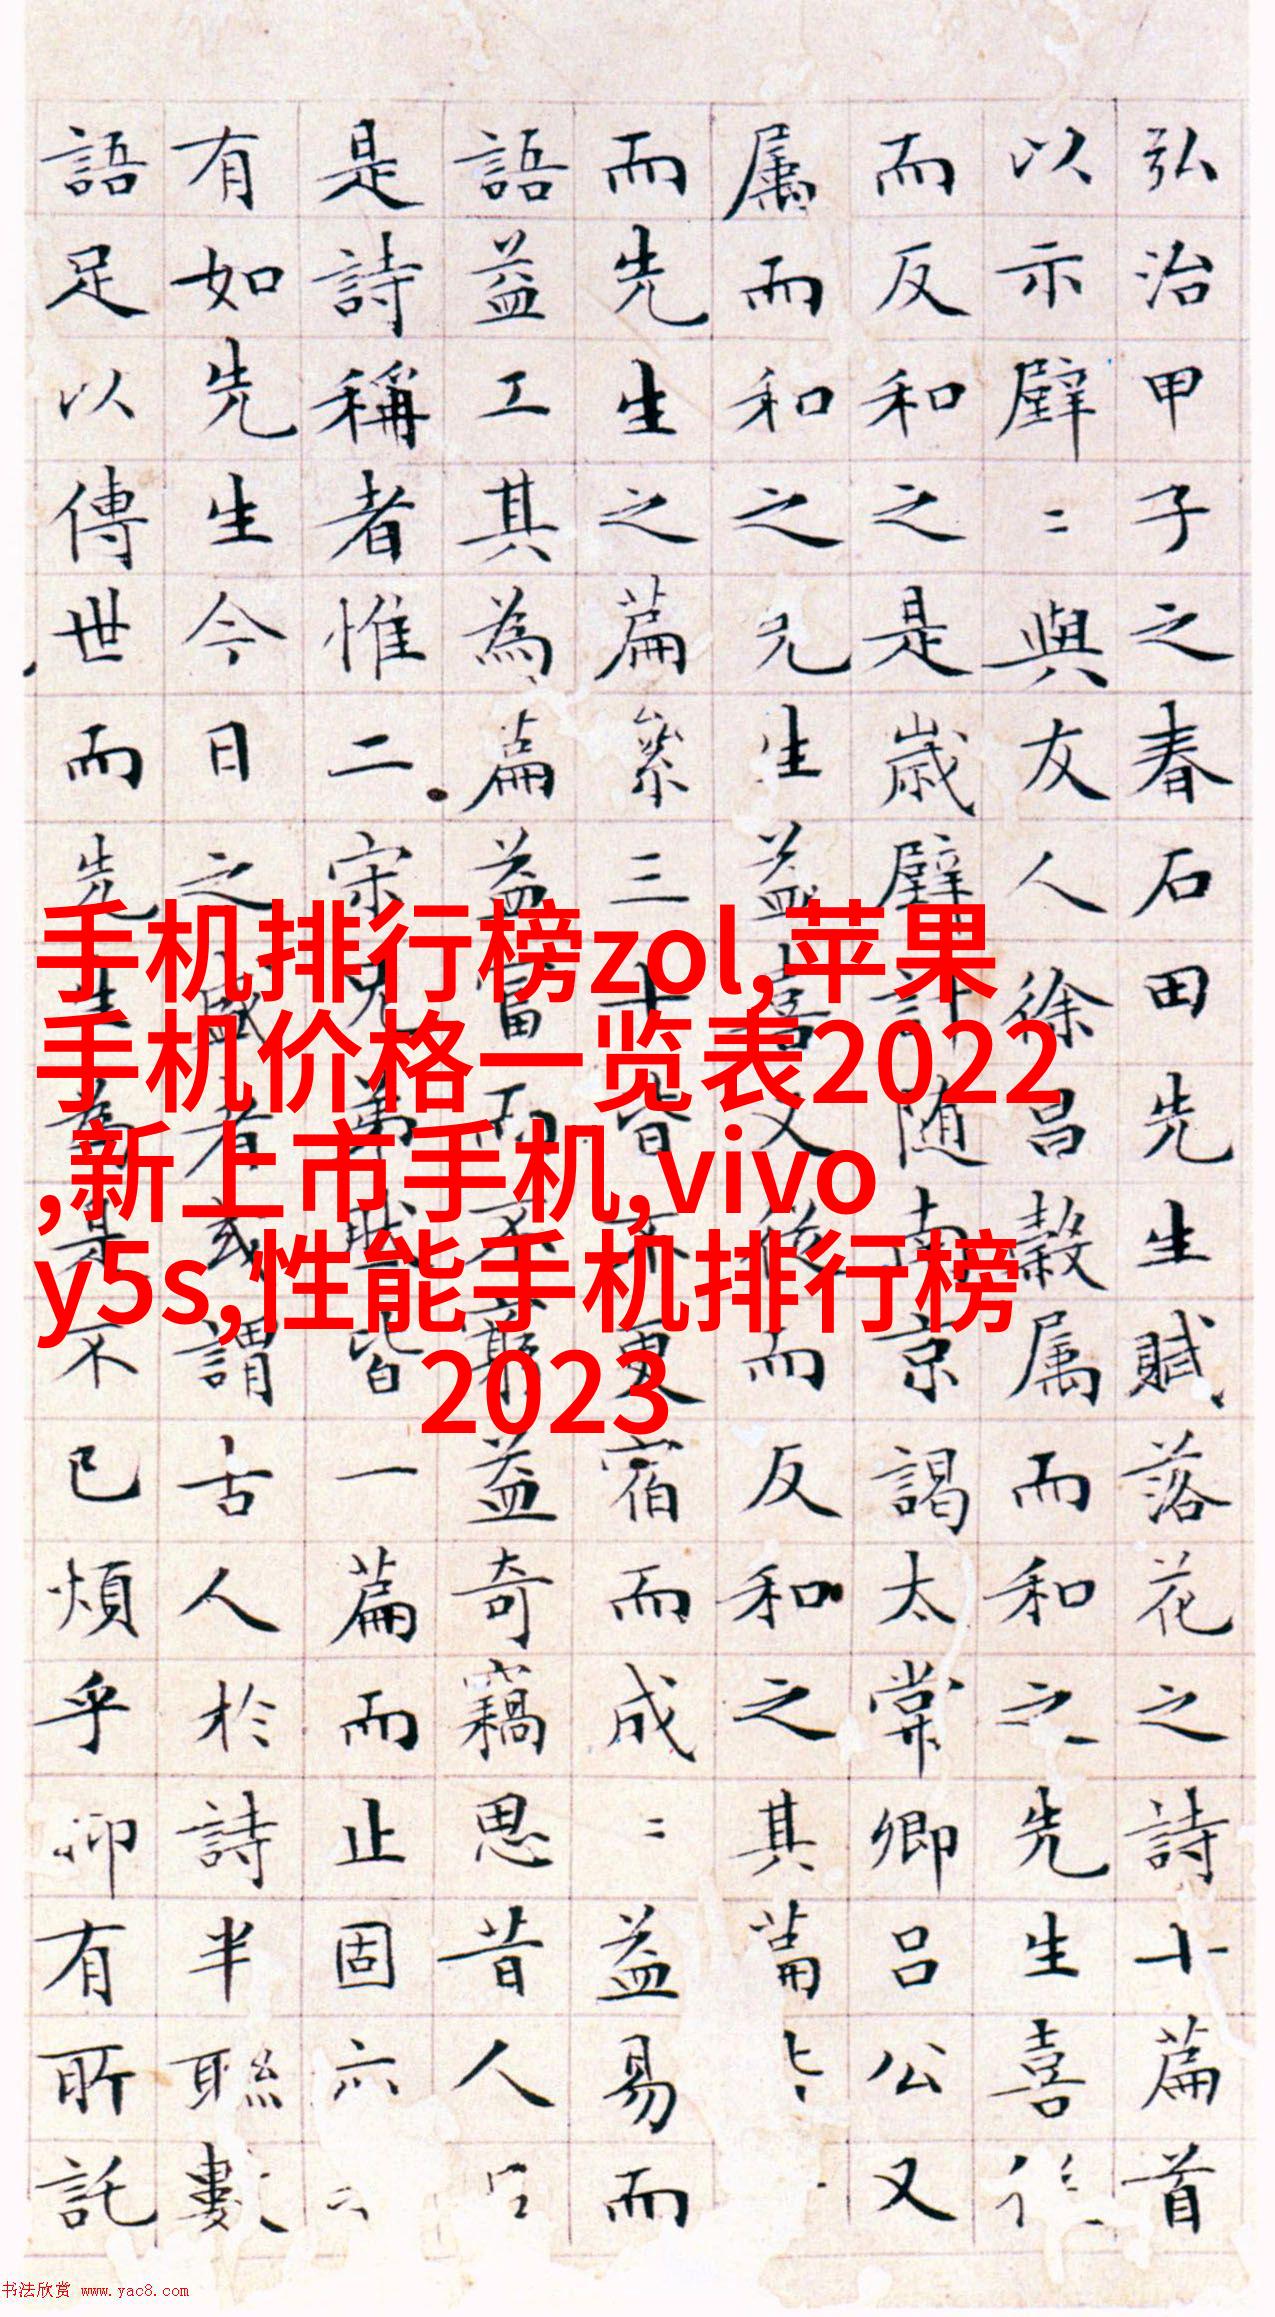 弘治甲子之春石田先生賦落花之詩十篇首
以示璧〻與友人徐昌榖属而和之先生喜
而反和之是歳璧計随南京謁太常卿吕公又
属而和之先生益喜又從而反和之其篇
而先生之篇累三十皆不更宿而成〻益易而
語益工其為篇益富而不窮益奇竊思昔人
是詩稱者惟二宋兄弟然皆一篇而止固
有如先生今日之盛者或謂古人於詩半聮數
語足以傳世而先生為是不已煩乎抑有所託
手机排行榜zol,苹果
手机价格一览表2022
,新上市手机,vivo
y5s,性能手机排行榜
2023
书法欣赏 www.yac8.com